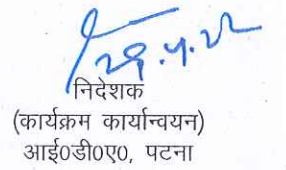 29.4.22
निदेशक
(कार्यक्रम कार्यान्वयन)
आई0डी0ए0, पटना